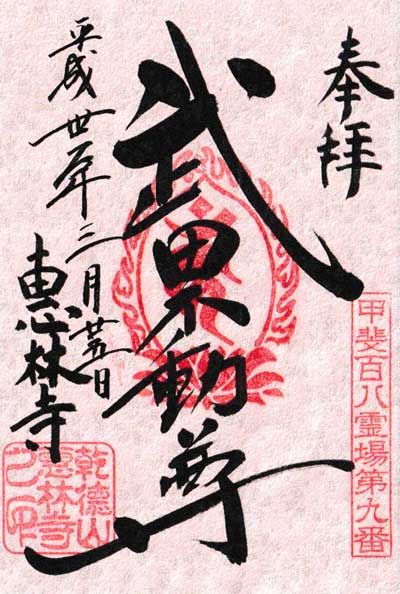 奉拝
甲斐百八霊場第九番
武田不動尊
平成 年三月廿五日
恵林寺
乾徳山
恵林寺
之印